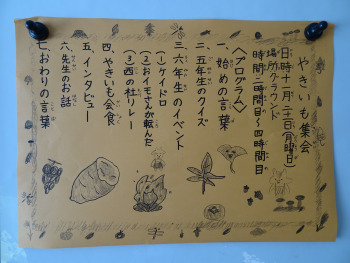 やきいも集会
日時十一月二十二日(月曜日)
場所グラウンド
時間二時間目〜四時間目
〈プログラム〉
一、始めの言葉
二、五年生のクイズ
三、六年生のイベント
(1)ケイドロ
(2)おイモさんが転んだ
(3)西の杜リレー
四、やきいも会食
五、インタビュー
六、先生のお話
七、おわりの言葉